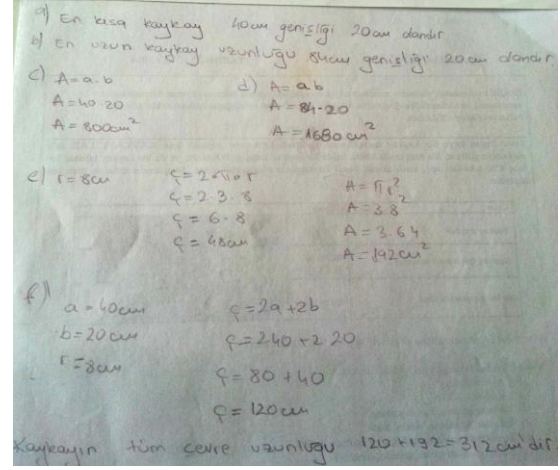 a) En kısa kaykay 40cm genişliği 20cm olandır
b) En uzun kaykay uzunluğu 84cm genişliği 20cm olandır.
c) A=a.b
A=40.20
A=800cm²
d) A=ab
A=84.20
A=1680cm²
e) r=8cm
ç=2.π.r
ç=2.3.8
ç=6.8
ç=48cm
A=πr²
A=3.8²
A=3.64
A=192cm²
f)
a=40cm
b=20cm
r=8cm
ç=2a+2b
ç=2.40+2.20
ç=80+40
ç=120cm
Kaykayın tüm çevre uzunluğu 120+192=312cm'dir